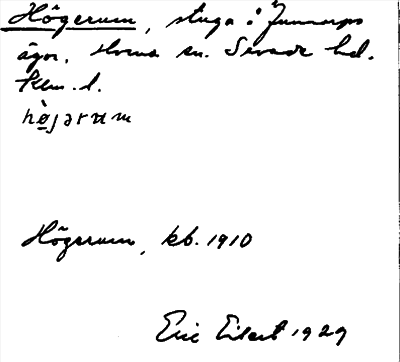 Högerum, stuga i Junnarps
ägor, Hvena sn. Sevede hd.
Klm. l.
hø̀jərum
Högerum, kb. 1910
Eric Eilert 1929